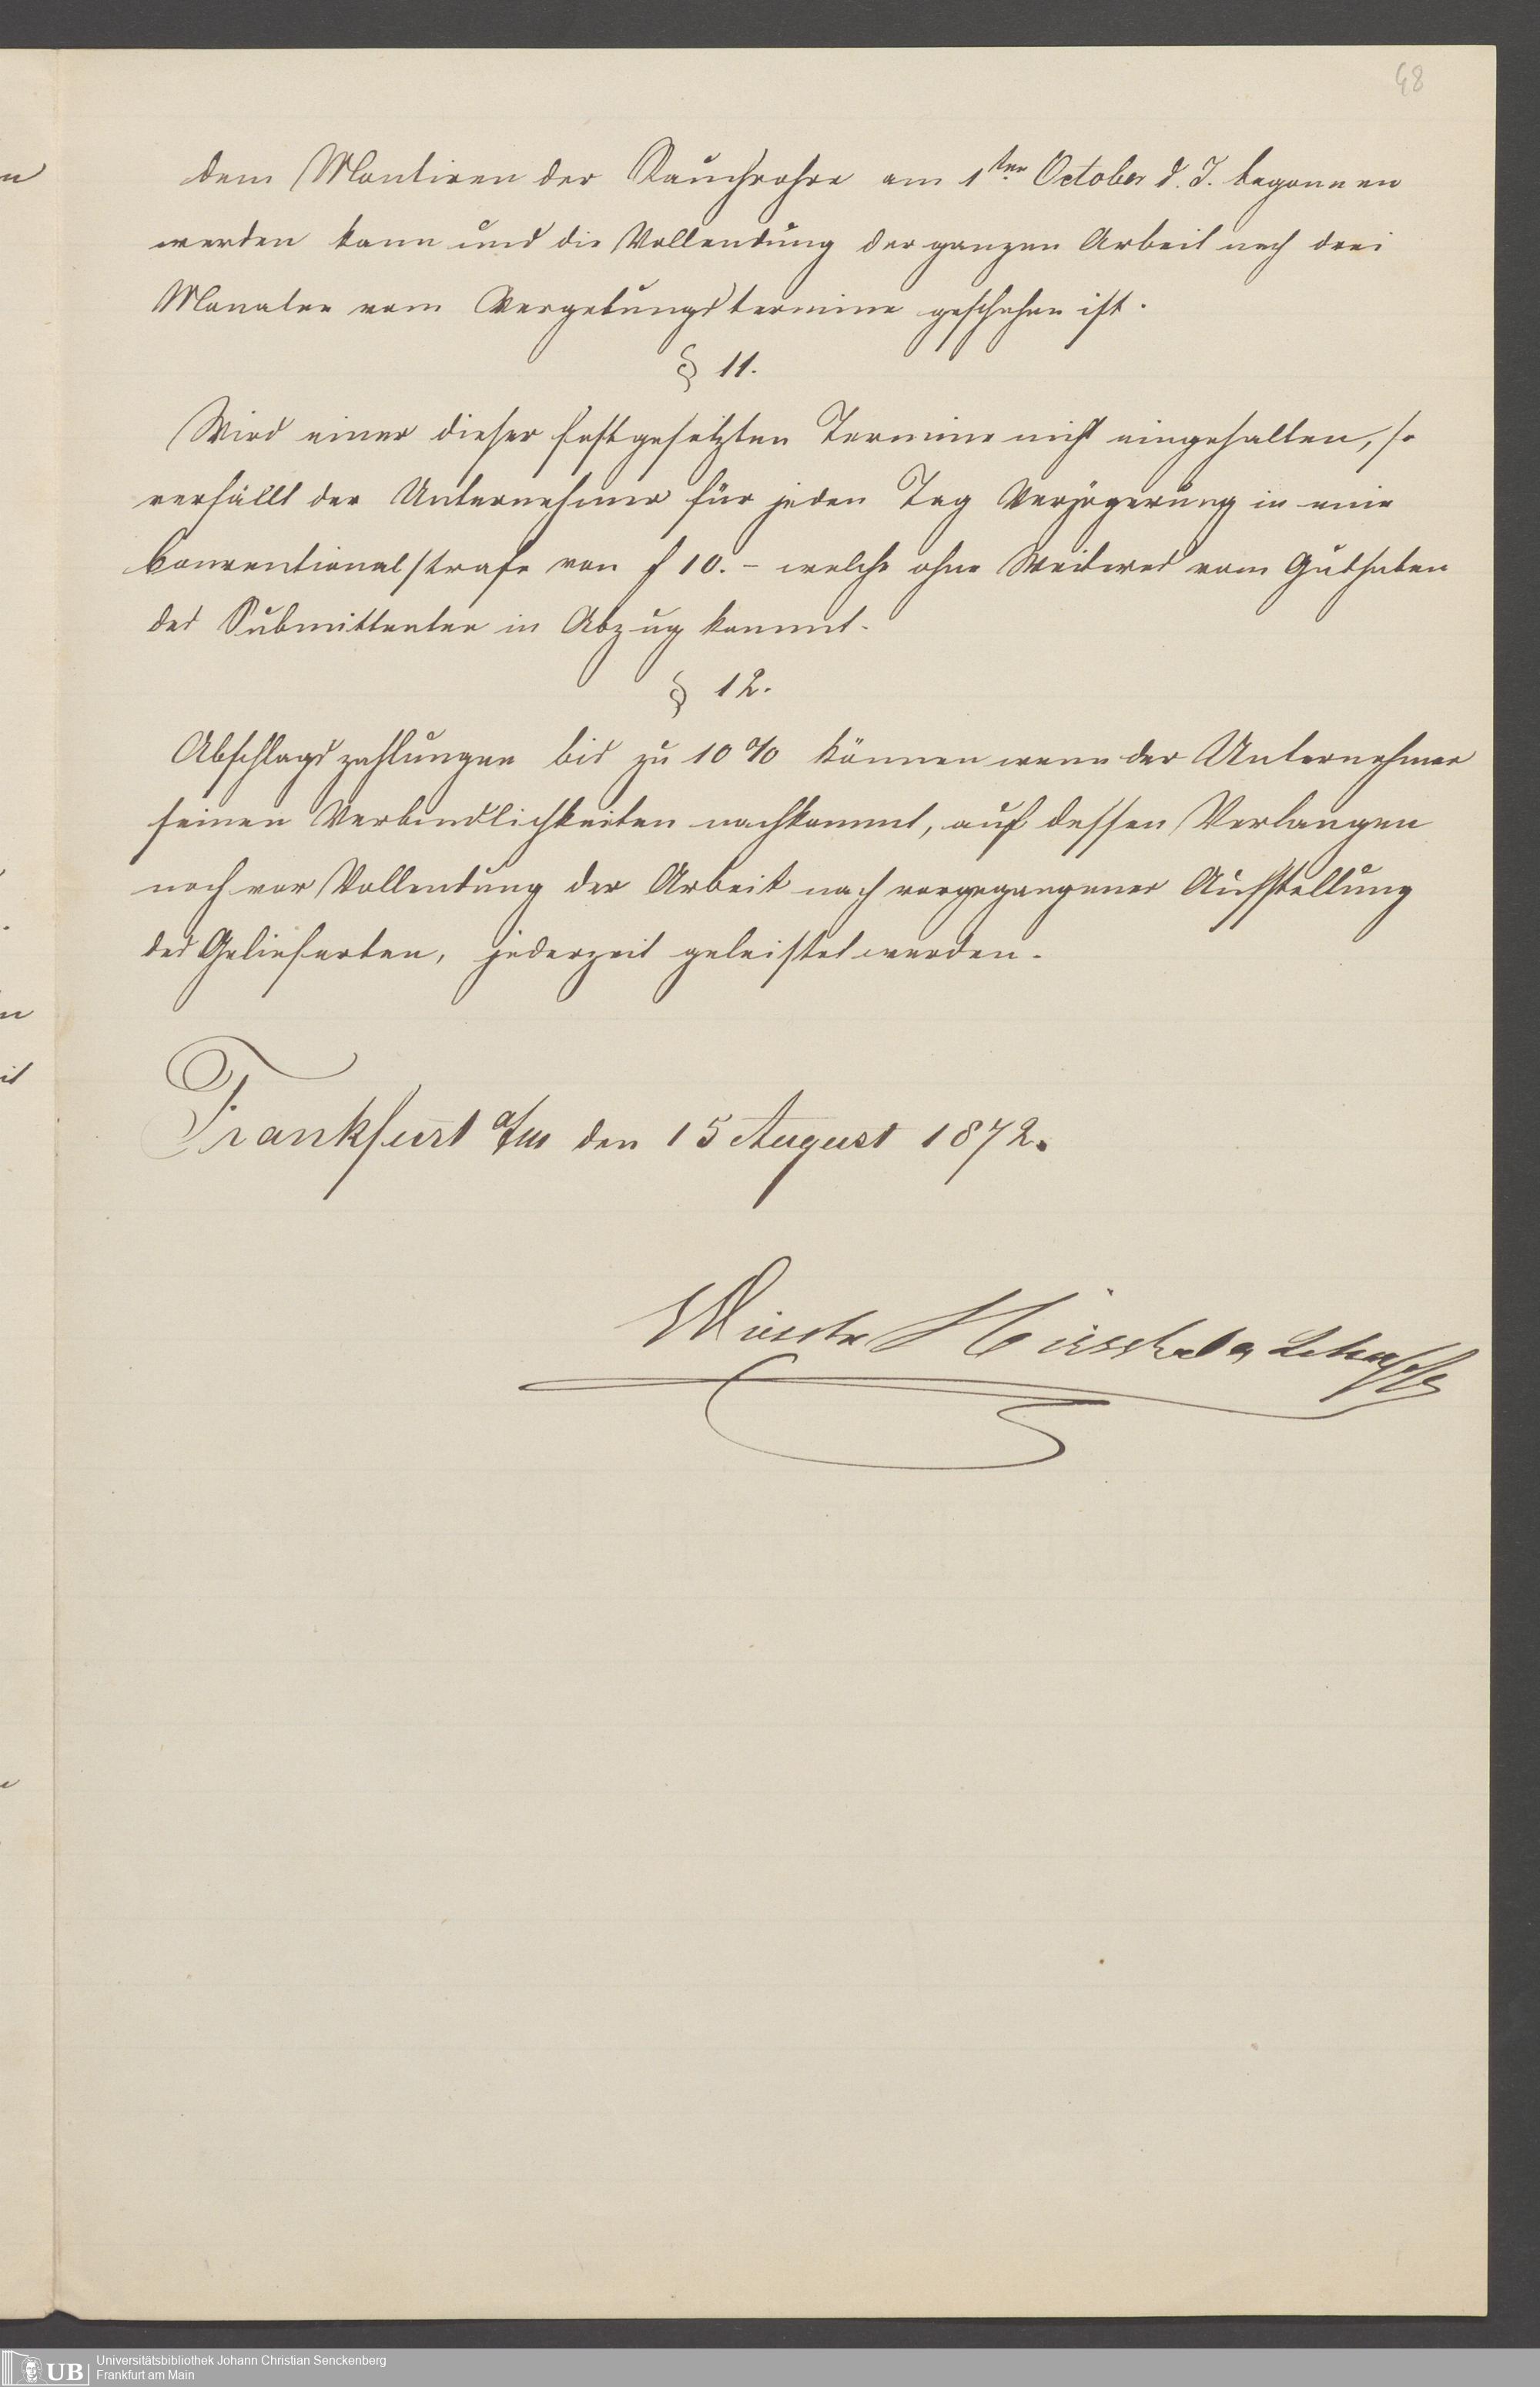 48
dem Montiren der Rauchrohre am 1ten October d. J. begonnen
werden kann und die Vollendung der ganzen Arbeit nach drei
Monaten vom Vergebungstermine geschehen ist.
§ 11.
Wird einer dieser festgesetzten Termine nicht eingehalten, so
verfällt der Unternehmer für jeden Tag Verzögerung in eine
Conventionalstrafe von f 10.- welche ohne Weiteres vom Guthaben
des Submittenten in Abzug kommt.
§ 12.
Abschlagszahlungen bis zu 10% können wenn der Unternehmer
seinen Verbindlichkeiten nachkommt, auf dessen Verlangen
noch vor Vollendung der Arbeit nach vorgegangener Aufstellung
des Gelieferten, jederzeit geleistet werden.
Frankfurt a/m den 15 August 1872.
UB Universitätsbibliothek Johann Christian Senckenberg
Frankfurt am Main